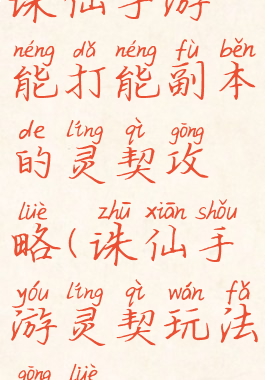 诛仙手游
néng dǎ néng fù běn
能打能副本
de líng qì gōng
的灵契攻
lüè zhū xiān shǒu
略(诛仙手
yóu líng qì wán fǎ
游灵契玩法
gōng lüè